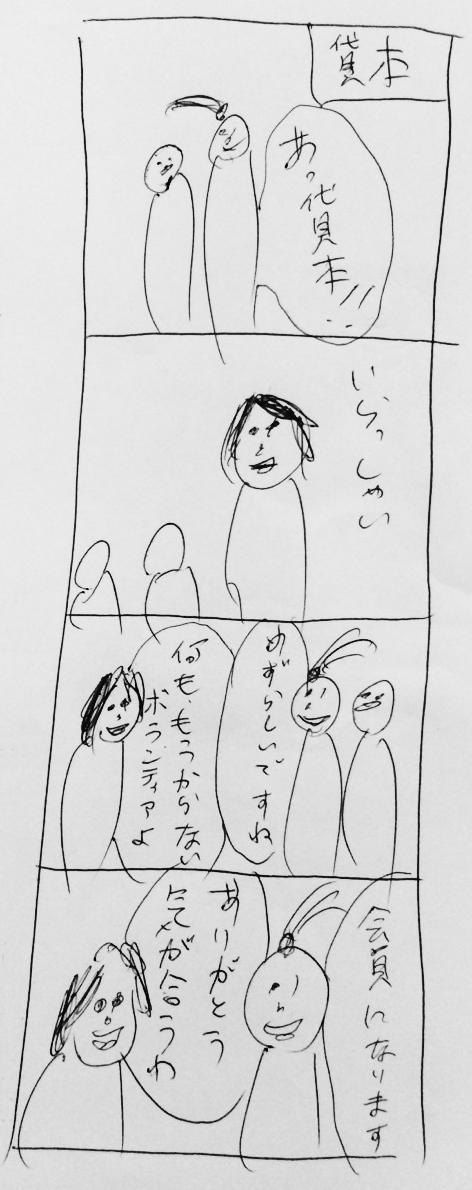 貸本
あっ貸本!!
いらっしゃい
めずらしいですね
何も、もうからない
ボランティアよ
会員になります
ありがとう
気が合うわ